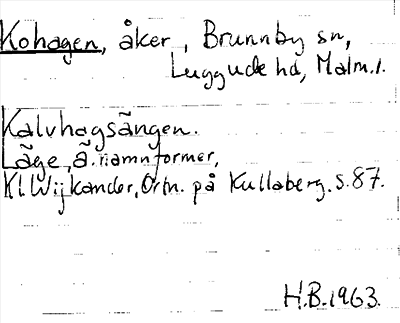 Kohagen, åker, Brunnby sn,
Luggude hd, Malm.l.
Kalvhagsängen.
Läge, ä. namnformer,
Kl. Wijkander, Ortn. på Kullaberg. s. 87.
H.B. 1963.